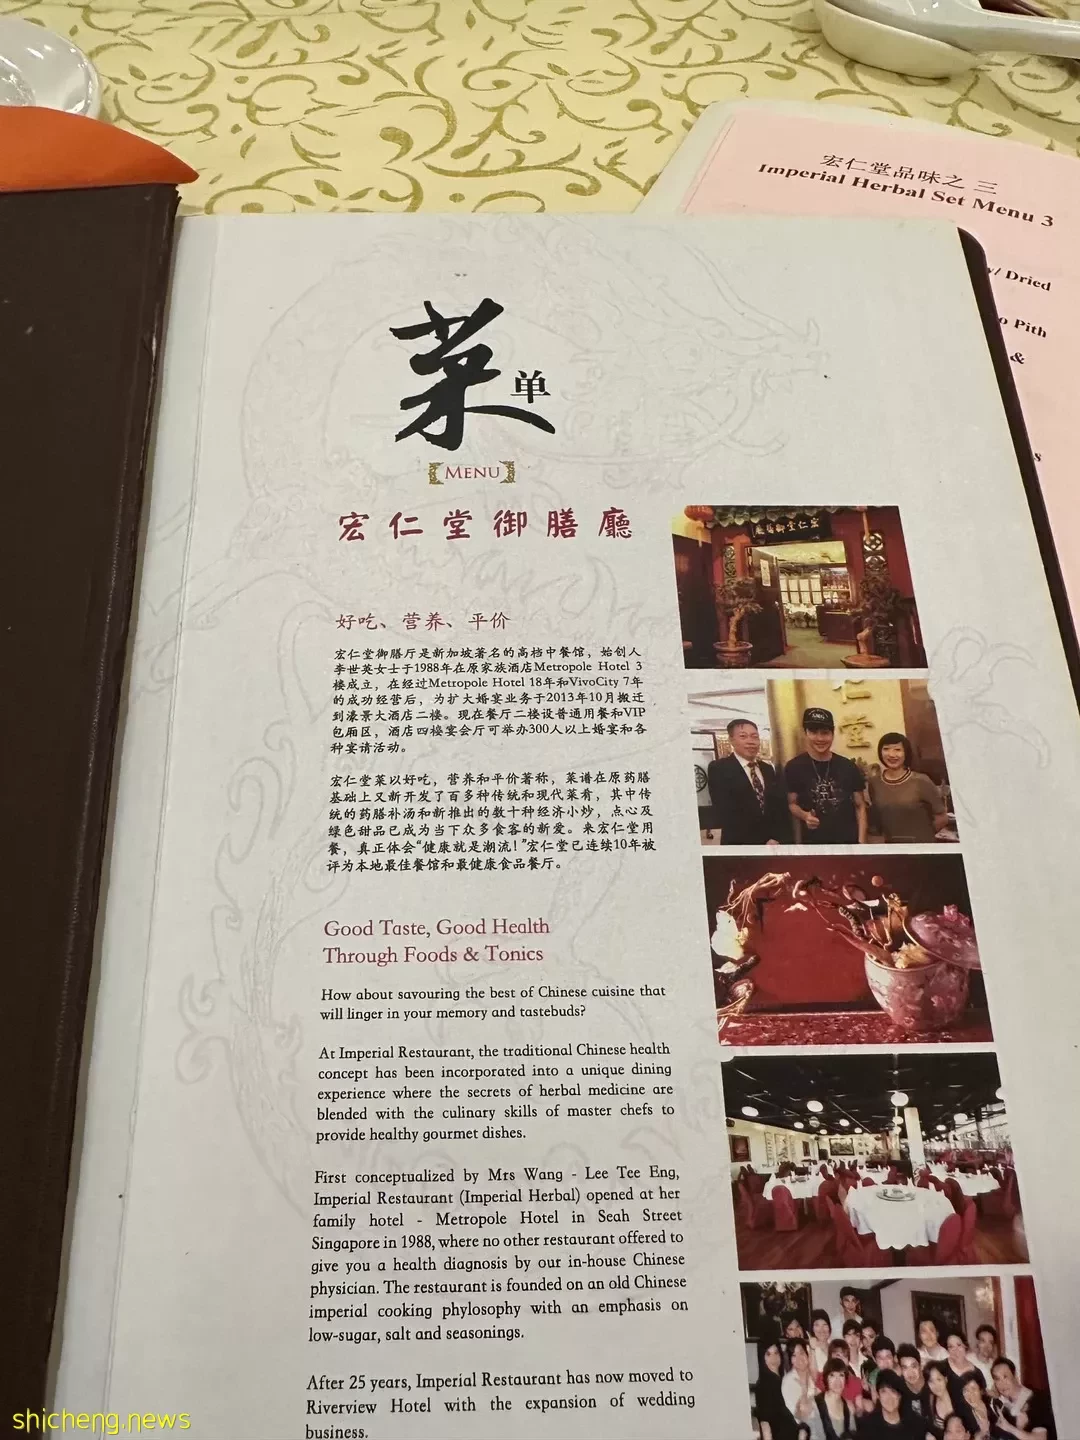 宏仁堂品味之 三
Imperial Herbal Set Menu 3
w/ Dried
o Pith
&
s
菜单
MENU
宏仁堂御膳廳
好吃、营养、平价
宏仁堂御膳厅是新加坡著名的高档中餐馆，始创人
李世英女士于1988年在原家族酒店Metropole Hotel 3
楼成立，在经过Metropole Hotel 18年和VivoCity 7年
的成功经营后，为扩大婚宴业务于2013年10月搬迁
到濠景大酒店二楼。现在餐厅二楼设普通用餐和VIP
包厢区，酒店四楼宴会厅可举办300人以上婚宴和各
种宴请活动。
宏仁堂菜以好吃，营养和平价著称，菜谱在原药膳
基础上又新开发了百多种传统和现代菜肴，其中传
统的药膳补汤和新推出的数十种经济小炒，点心及
绿色甜品已成为当下众多食客的新爱。来宏仁堂用
餐，真正体会“健康就是潮流！”宏仁堂已连续10年被
评为本地最佳餐馆和最健康食品餐厅。
Good Taste, Good Health
Through Foods & Tonics
How about savouring the best of Chinese cuisine that
will linger in your memory and tastebuds?
At Imperial Restaurant, the traditional Chinese health
concept has been incorporated into a unique dining
experience where the secrets of herbal medicine are
blended with the culinary skills of master chefs to
provide healthy gourmet dishes.
First conceptualized by Mrs Wang - Lee Tee Eng,
Imperial Restaurant (Imperial Herbal) opened at her
family hotel - Metropole Hotel in Seah Street
Singapore in 1988, where no other restaurant offered to
give you a health diagnosis by our in-house Chinese
physician. The restaurant is founded on an old Chinese
imperial cooking phylosophy with an emphasis on
low-sugar, salt and seasonings.
After 25 years, Imperial Restaurant has now moved to
Riverview Hotel with the expansion of wedding
business.
廳膳御堂仁宏
仁
堂
shicheng.news